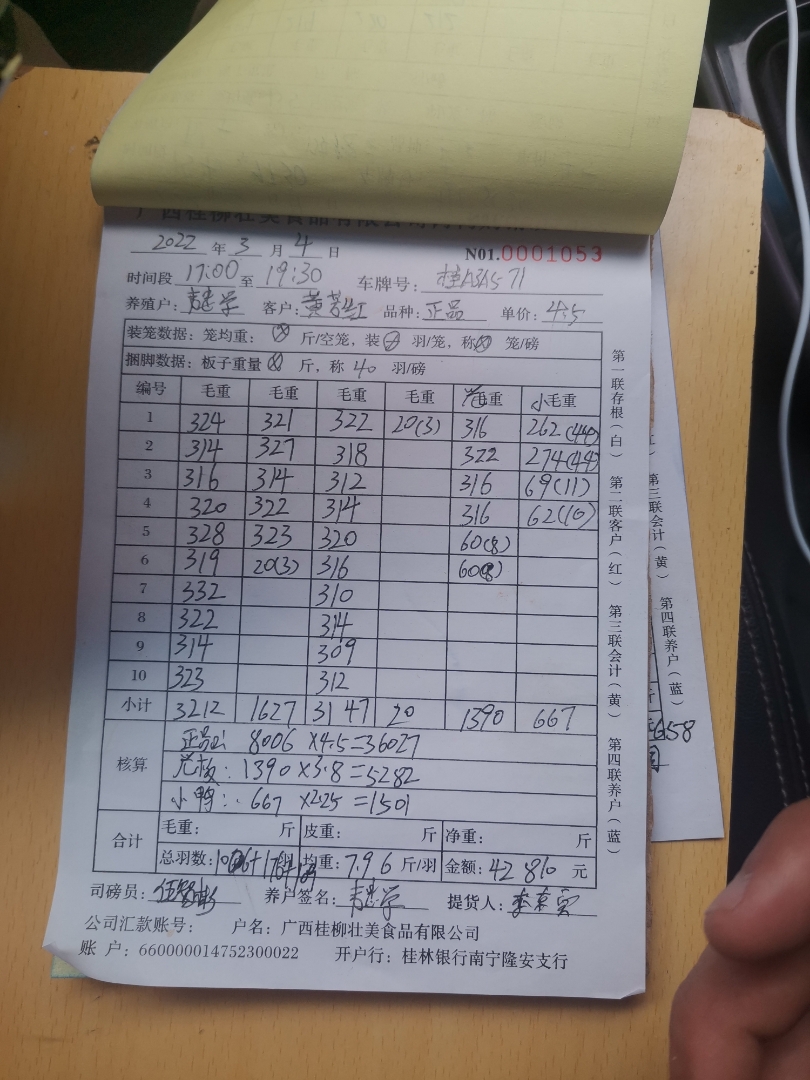 2022年3月4日 N01.0001053
时间段17:00至19:30 车牌号:
养殖户: 客户:黄 品种:正品 单价:4.5
装笼数据:笼均重: 斤/空笼,装 羽/笼,称 笼/磅
捆脚数据:板子重量 斤,称40羽/磅
编号 毛重 毛重 毛重 毛重 毛重 小毛重
1 324 321 322 20(3) 316 262(44)
2 314 327 318 322 274(44)
3 316 314 312 316 69(11)
4 320 322 314 316 62(10)
5 328 323 320 60(8)
6 319 20(3) 316 60(8)
7 332 310
8 322 314
9 314 309
10 323 312
小计 3212 1627 3147 20 1390 667
核算
正品: 8006×4.5=36027
: 1390×3.8=5282
小鸭: 667×2.25=1501
合计
毛重: 斤 皮重: 斤 净重: 斤
总羽数: 羽 均重:7.96斤/羽 金额:42810元
司磅员: 养户签名: 提货人:
公司汇款账号: 户名:广西桂柳壮美食品有限公司
账 户:660000014752300022 开户行:桂林银行南宁隆安支行
第一联存根(白) 第二联客户(红) 第三联会计(黄) 第四联养户(蓝)
第三联会计(黄) 第四联养户(蓝)